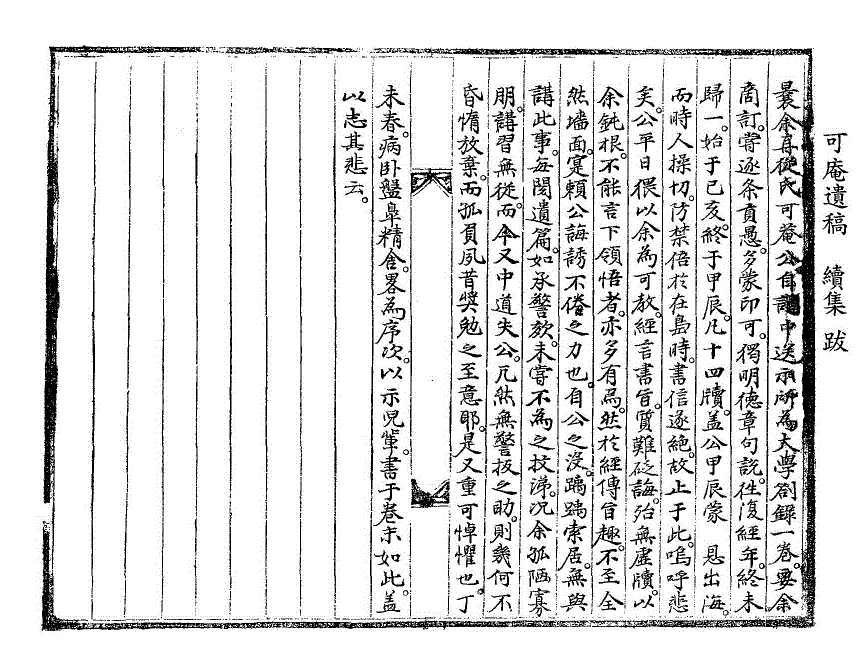 可庵遺稿 續集 跋
曩余再從氏可菴公自謫中送示所為大學劄錄一卷。要余
商訂。嘗逐条貢愚。多蒙印可。獨明德章句說。往復經年。終未
歸一。始于己亥。終于甲辰。凡十四牘。盖公甲辰蒙 恩出海。
而時人操切。防禁倍於在島時。書信遂絕。故止于此。嗚呼悲
矣。公平日猥以余為可教。經言書旨。質難砭誨。殆無虛牘。以
余鈍根。不能言下領悟者。亦多有焉。然於經傳旨趣。不至全
然墻面。寔賴公誨誘不倦之力也。自公之沒。踽踽索居。無與
講此事。每閱遺篇。如承警欬。未嘗不為之抆涕。况余孤陋寡
朋。講習無從。而今又中道失公。兀然無警拔之助。則幾何不
昏惰放棄。而孤負夙昔奬勉之至意耶。是又重可悼懼也。丁
未春。病卧盤皐精舍。畧為序次。以示兒軰。書于卷末如此。盖
以志其悲云。